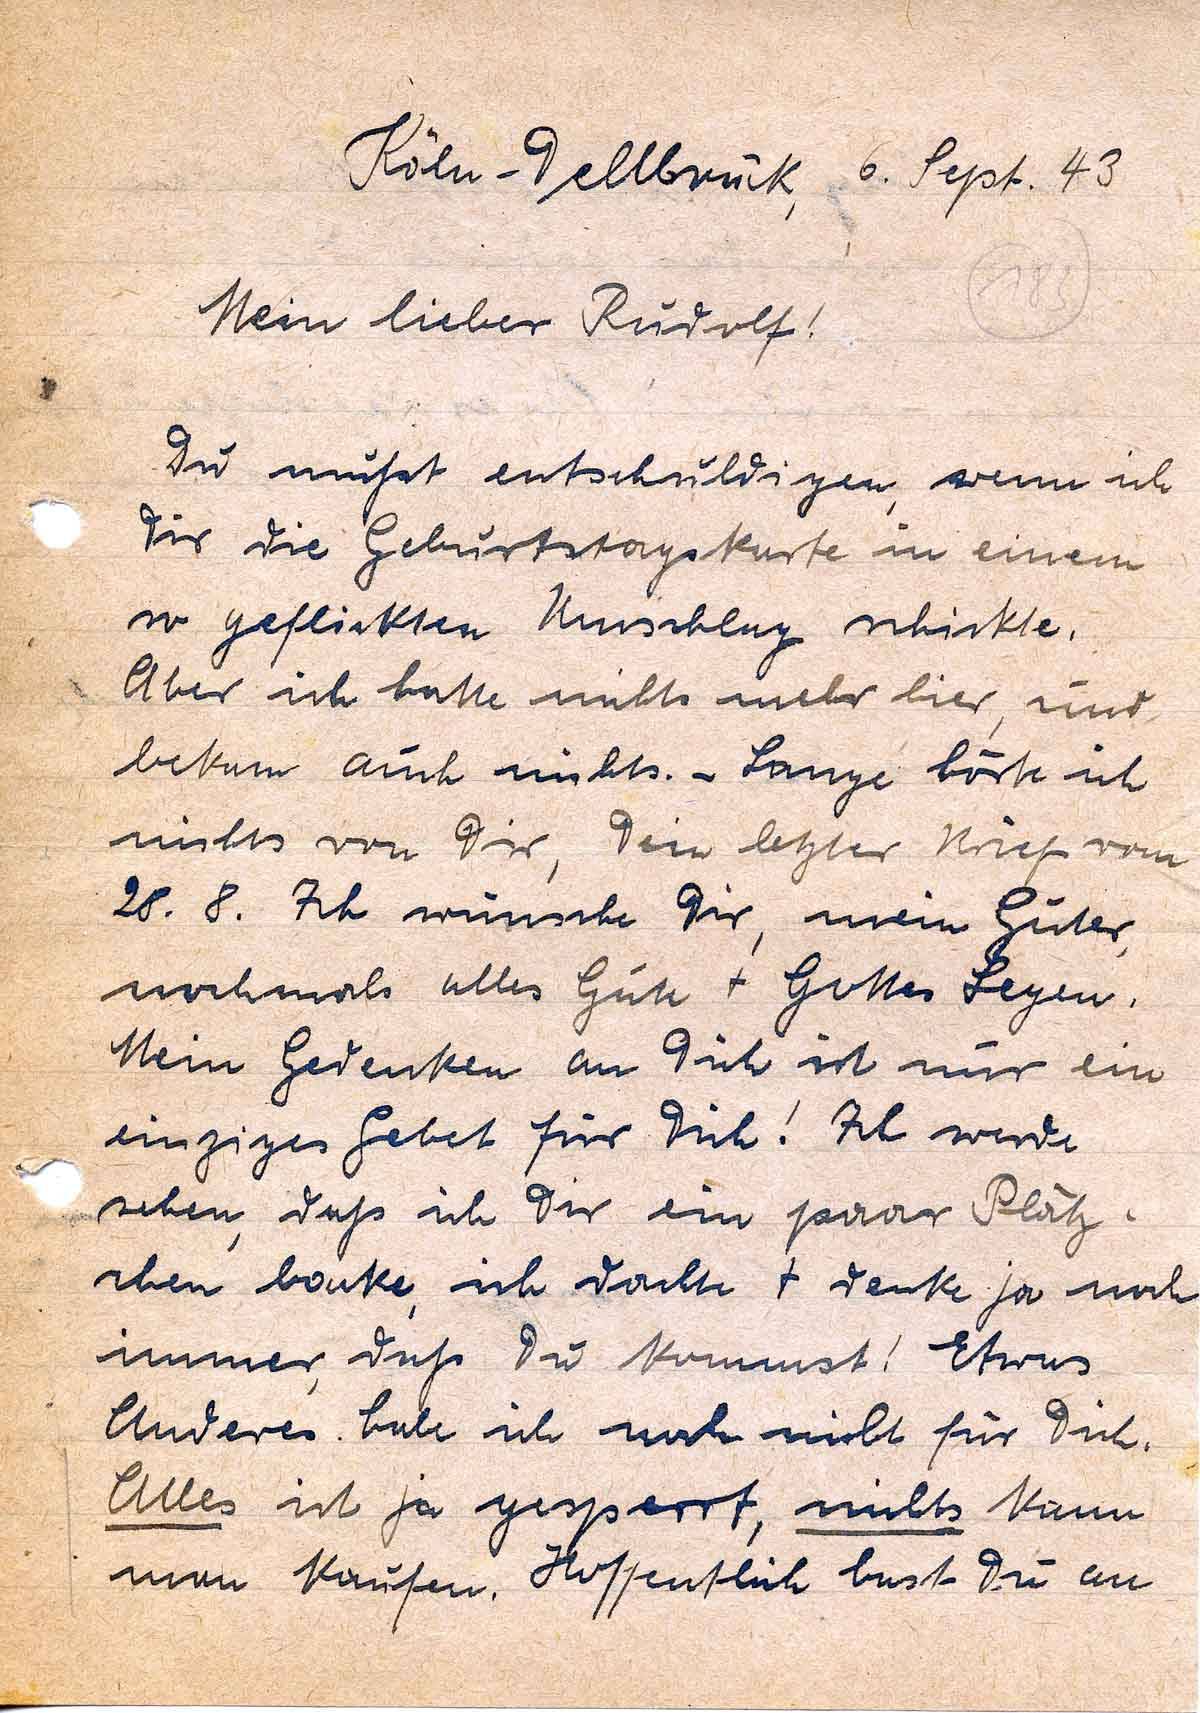 Köln-Dellbrück, 6. Sept. 43
18
Mein lieber Rudolf!
Du mußt entschuldigen, wenn ich
Dir die Geburtstagskarte in einem
so geflickten Umschlag schickte.
Aber ich hatte nichts mehr hier, und
bekam auch nichts. - Lange hörte ich
nichts von Dir, Dein letzter Brief vom
28. 8. Ich wünsche Dir, mein Guter,
nochmals alles Gute + Gottes Segen.
Mein Gedenken an Dich ist nur ein
einziges Gebet für Dich! Ich werde
sehen, daß ich Dir ein paar Plätz-
chen backe, ich dachte + denke ja noch
immer, daß Du kommst! Etwas
Anderes habe ich noch nicht für Dich.
Alles ist ja gesperrt, nichts kann
man kaufen. Hoffentlich hast Du an